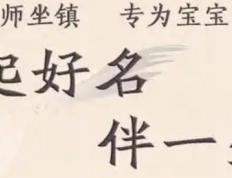 师坐镇 专为宝宝
起好名
伴一